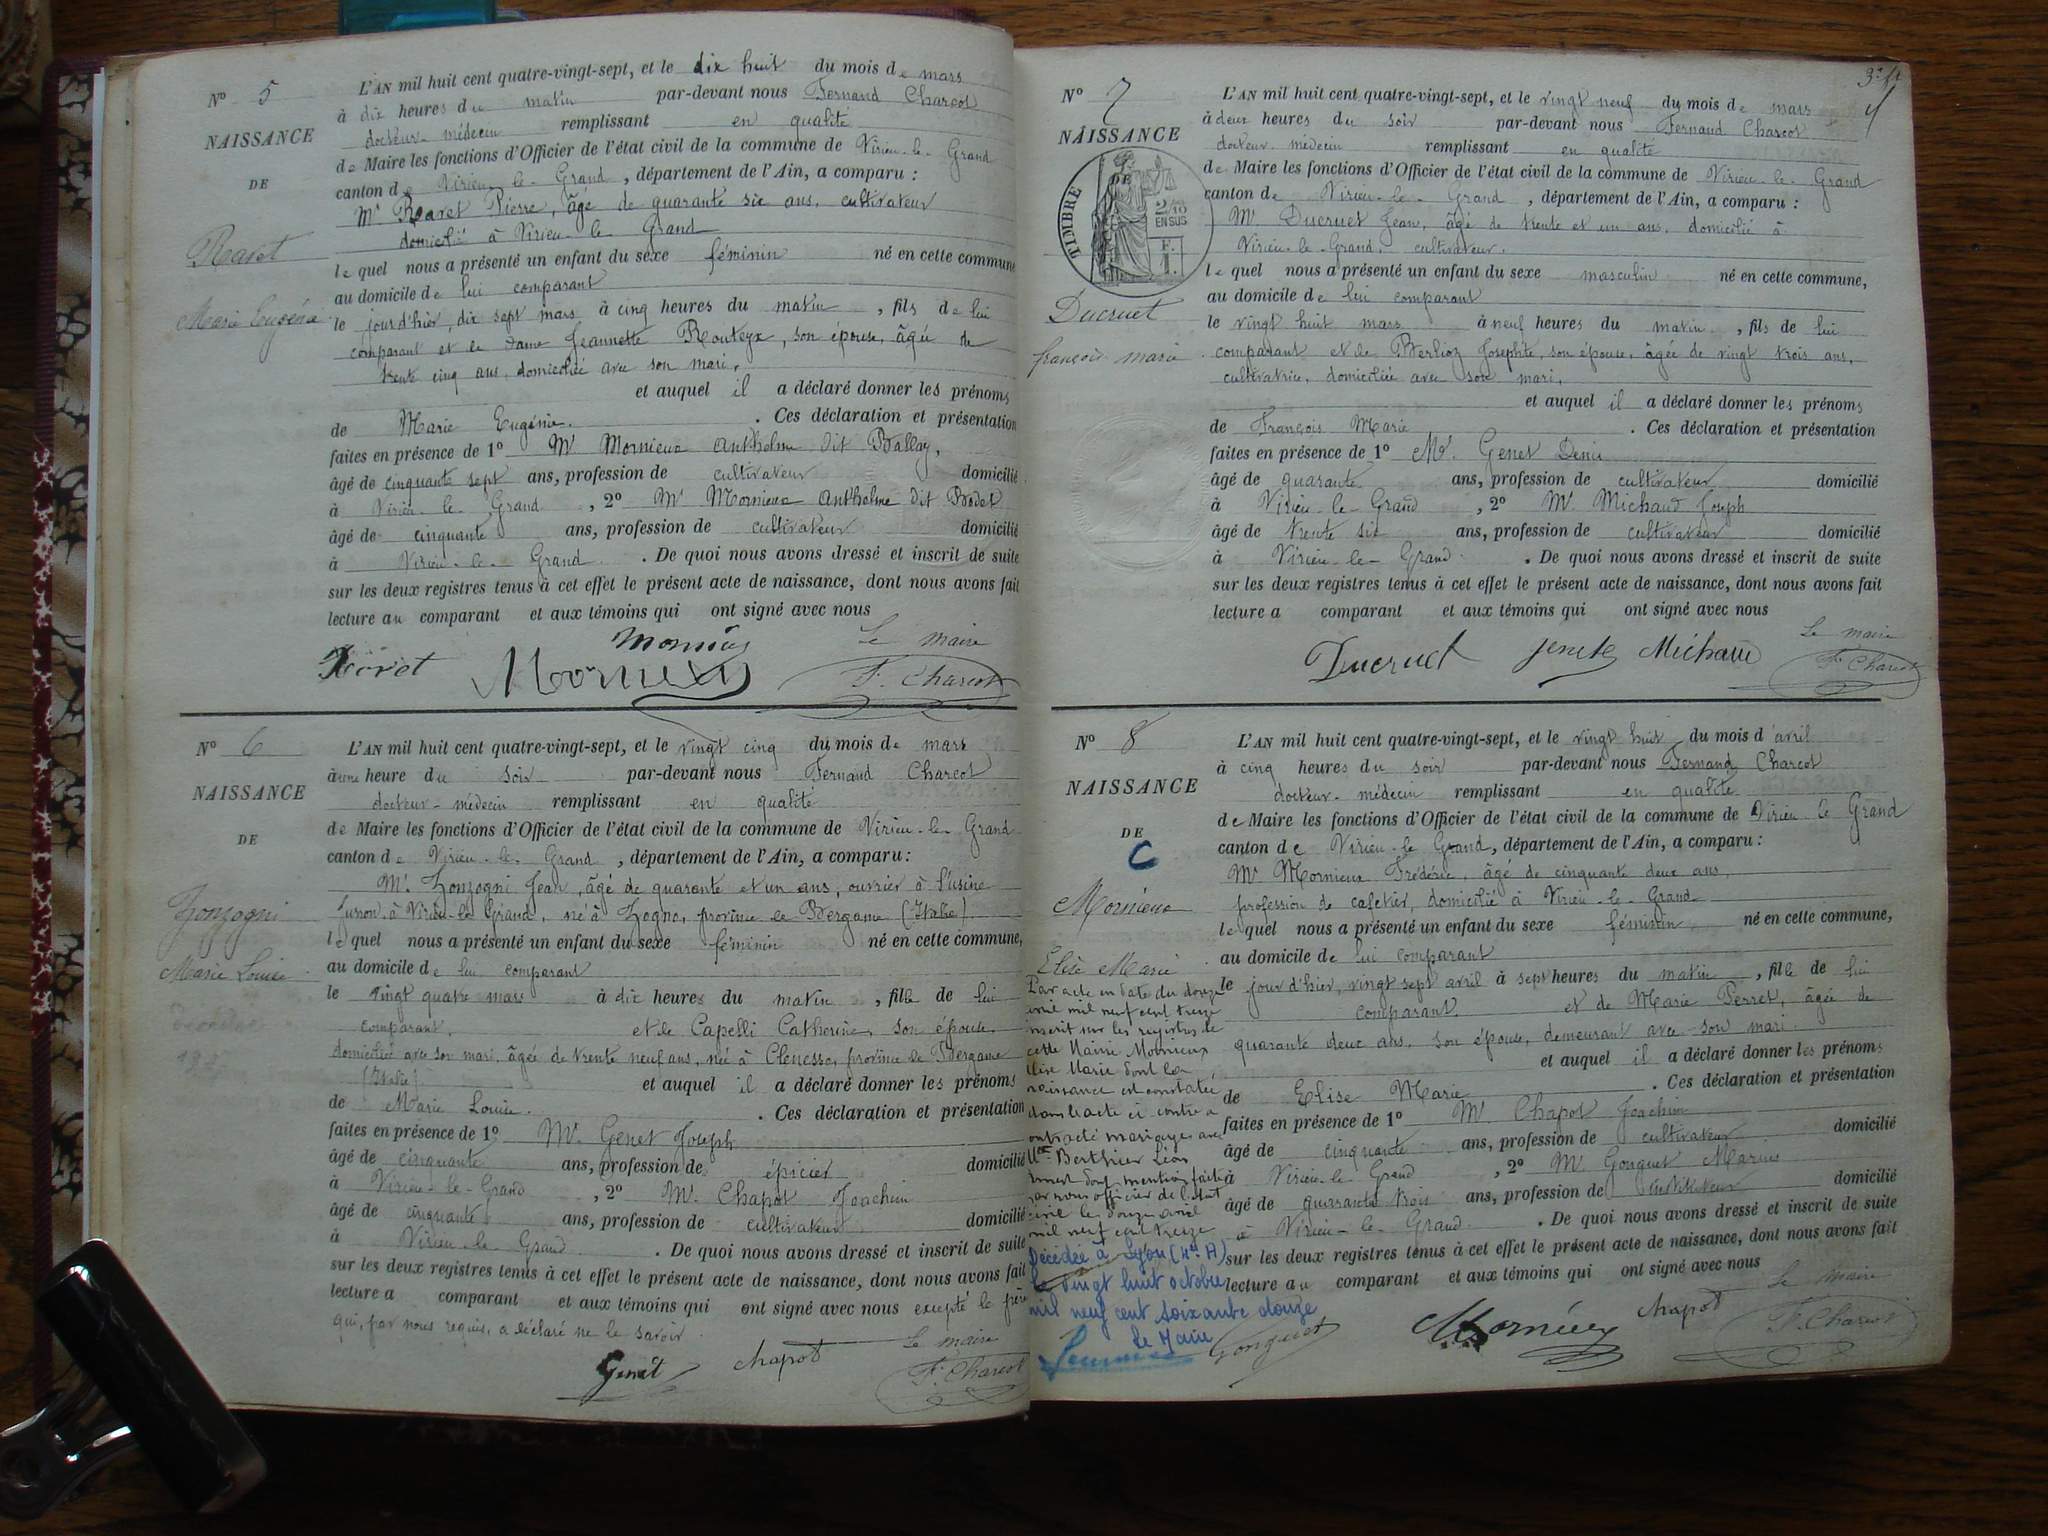 N° 5
NAISSANCE
DE
Marie Eugénie
L'AN mil huit cent quatre-vingt-sept, et le dix huit du mois de mars
à dix heures du matin par-devant nous Fernand Charcot
docteur-médecin remplissant en qualité
de Maire les fonctions d'Officier de l'état civil de la commune de Virieu-le-Grand
canton de Virieu-le-Grand, département de l'Ain, a comparu :
Mr Pierre, âgé de quarante six ans, cultivateur
domicilié à Virieu-le-Grand
lequel nous a présenté un enfant du sexe féminin né en cette commune
au domicile de lui comparant
le jour d'hier, dix sept mars à cinq heures du matin, fils de lui
comparant et de dame Jeannette, son épouse, âgée de
trente cinq ans, domiciliée avec son mari,
et auquel il a déclaré donner les prénoms
de Marie Eugénie. Ces déclaration et présentation
faites en présence de 1° Mr Mornieux Anthelme dit Ballay,
âgé de cinquante sept ans, profession de cultivateur domicilié
à Virieu-le-Grand, 2° Mr Mornieux Anthelme dit Bodet
âgé de cinquante ans, profession de cultivateur domicilié
à Virieu-le-Grand. De quoi nous avons dressé et inscrit de suite
sur les deux registres tenus à cet effet le présent acte de naissance, dont nous avons fait
lecture au comparant et aux témoins qui ont signé avec nous
Le maire
F. Charcot
N° 6
NAISSANCE
DE
Zonzogni
Marie Louise
L'AN mil huit cent quatre-vingt-sept, et le vingt cinq du mois de mars
à une heure du soir par-devant nous Fernand Charcot
docteur-médecin remplissant en qualité
de Maire les fonctions d'Officier de l'état civil de la commune de Virieu-le-Grand
canton de Virieu-le-Grand, département de l'Ain, a comparu :
Mr Zonzogni Jean, âgé de quarante et un ans, ouvrier à l'usine
à Virieu-le-Grand, né à Zogno, province de Bergame (Italie)
lequel nous a présenté un enfant du sexe féminin né en cette commune,
au domicile de lui comparant
le vingt quatre mars à dix heures du matin, fille de lui
comparant, et de Capelli Catherine, son épouse,
domiciliée avec son mari, âgée de trente neuf ans, née à, province de Bergame
(Italie) et auquel il a déclaré donner les prénoms
de Marie Louise. Ces déclaration et présentation
faites en présence de 1° Mr Genet Joseph
âgé de cinquante ans, profession de épicier domicilié
à Virieu-le-Grand, 2° Mr Chapot Joachim
âgé de cinquante ans, profession de cultivateur domicilié
à Virieu-le-Grand. De quoi nous avons dressé et inscrit de suite
sur les deux registres tenus à cet effet le présent acte de naissance, dont nous avons fait
lecture a comparant et aux témoins qui ont signé avec nous excepté le père
qui, par nous requis, a déclaré ne le savoir.
Genet Chapot Le maire
F. Charcot
N° 7
NAISSANCE
DE
TIMBRE
2/10
EN SUS
Ducruet
françois marie
L'AN mil huit cent quatre-vingt-sept, et le vingt neuf du mois de mars
à deux heures du soir par-devant nous Fernand Charcot
docteur-médecin remplissant en qualité
de Maire les fonctions d'Officier de l'état civil de la commune de Virieu-le-Grand
canton de Virieu-le-Grand, département de l'Ain, a comparu :
Mr Ducruet Jean, âgé de trente et un ans, domicilié à
Virieu-le-Grand, cultivateur.
lequel nous a présenté un enfant du sexe masculin né en cette commune,
au domicile de lui comparant
le vingt huit mars à neuf heures du matin, fils de lui
comparant et de Berlioz Josephte, son épouse, âgée de vingt trois ans,
cultivatrice, domiciliée avec son mari,
et auquel il a déclaré donner les prénoms
de François Marie. Ces déclaration et présentation
faites en présence de 1° Mr. Genet Denis
âgé de quarante ans, profession de cultivateur domicilié
à Virieu-le-Grand, 2° Mr. Michaud Joseph
âgé de trente six ans, profession de cultivateur domicilié
à Virieu-le-Grand. De quoi nous avons dressé et inscrit de suite
sur les deux registres tenus à cet effet le présent acte de naissance, dont nous avons fait
lecture a comparant et aux témoins qui ont signé avec nous
Ducruet Michaud Le maire
F. Charcot
N° 8
NAISSANCE
DE
C
Mornieux
Elise Marie
Par acte en date du douze
avril mil neuf cent treize
inscrit sur les registres de
cette Mairie Mornieux
Elise Marie dont la
naissance est constatée
dans l'acte ci-contre a
contracté mariage avec
Berthier Léon
Ernest dont mention faite
par nous officier de l'état
civil le douze avril
mil neuf cent treize
Décédée à Lyon (4me A)
le vingt huit octobre
mil neuf cent soixante douze
Le Maire
L'AN mil huit cent quatre-vingt-sept, et le vingt huit du mois d'avril
à cinq heures du soir par-devant nous Fernand Charcot
docteur-médecin remplissant en qualité
de Maire les fonctions d'Officier de l'état civil de la commune de Virieu-le-Grand
canton de Virieu-le-Grand, département de l'Ain, a comparu :
Mr Mornieux Frédéric, âgé de cinquante deux ans,
profession de cafetier, domicilié à Virieu-le-Grand
lequel nous a présenté un enfant du sexe féminin né en cette commune,
au domicile de lui comparant
le jour d'hier, vingt sept avril à sept heures du matin, fille de lui
comparant et de Marie Perret, âgée de
quarante deux ans, son épouse, demeurant avec son mari.
et auquel il a déclaré donner les prénoms
de Elise Marie. Ces déclaration et présentation
faites en présence de 1° Mr. Chapot Joachim
âgé de cinquante ans, profession de cultivateur domicilié
à Virieu-le-Grand, 2° Mr. Gonguet Marius
âgé de quarante trois ans, profession de instituteur domicilié
à Virieu-le-Grand. De quoi nous avons dressé et inscrit de suite
sur les deux registres tenus à cet effet le présent acte de naissance, dont nous avons fait
lecture au comparant et aux témoins qui ont signé avec nous
Gonguet Chapot Le maire
F. Charcot